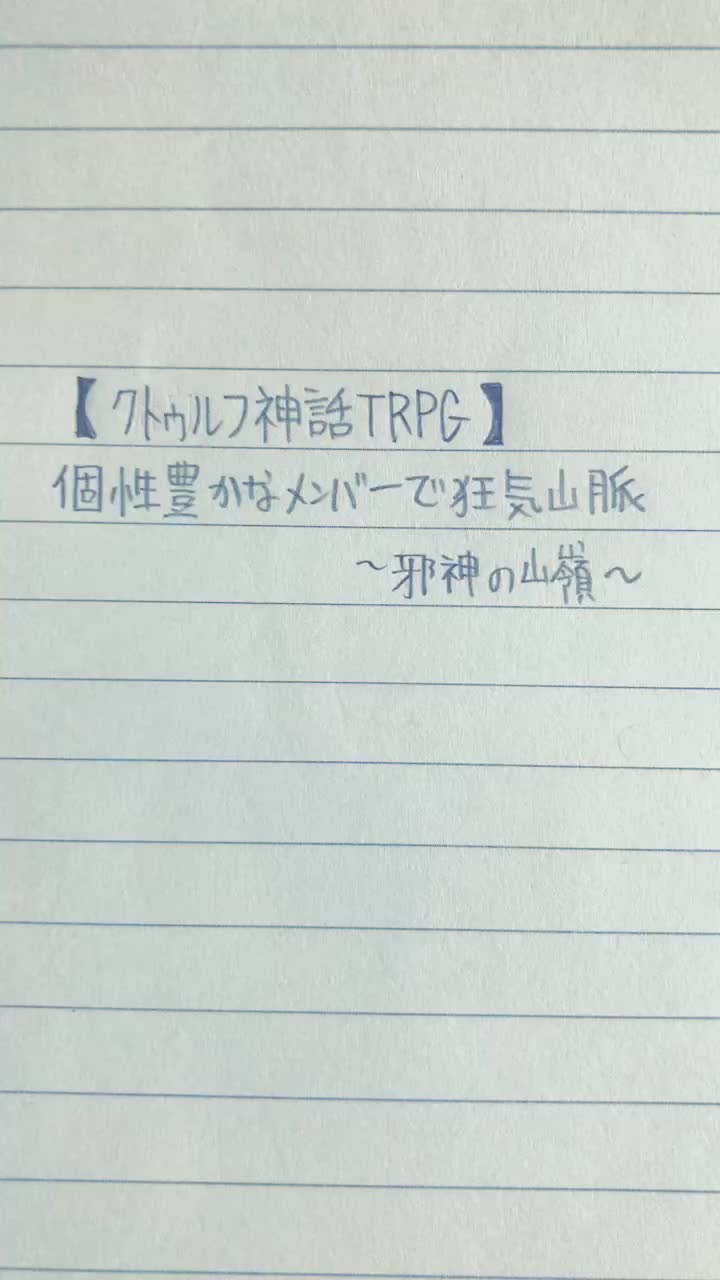 【クトゥルフ神話TRPG】
個性豊かなメンバーで狂気山脈
～邪神の山嶺～